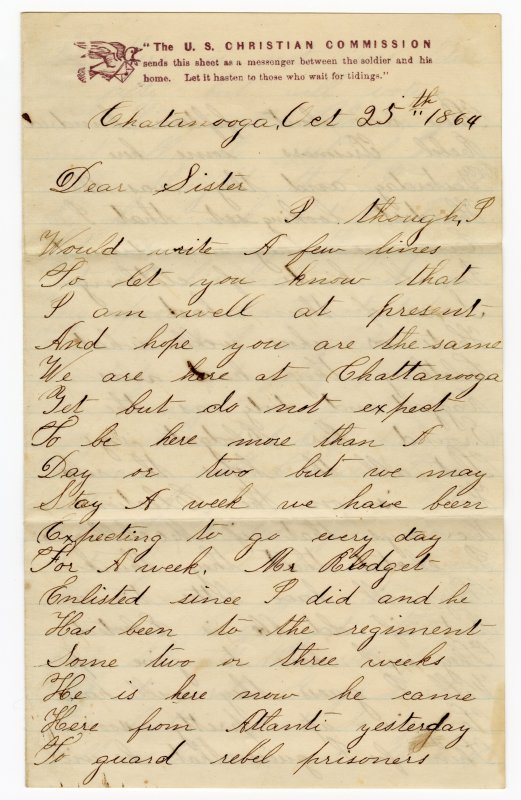 "The U. S. CHRISTIAN COMMISSION
sends this sheet as a messenger between the soldier and his
home. Let it hasten to those who wait for tidings."
Chatanooga, Oct 25th 1864
Dear Sister
I though, I
Would write A few lines
To let you know that
I am well at present.
And hope you are the same
We are here at Chattanooga
Yet but do not expect
To be here more than A
Day or two but we may
Stay A week we have been
Expecting to go every day
For A week. Mr Blodget
Enlisted since I did and he
Has been to the regiment
Some two or three weeks
He is here now he came
Here from Atlanti yesterday
To guard rebel prisoners